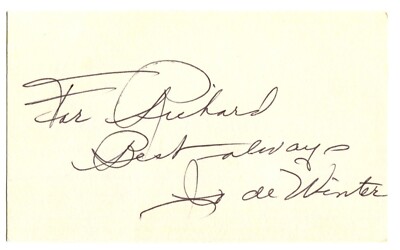 For Richard
Best always
Jo de Winter